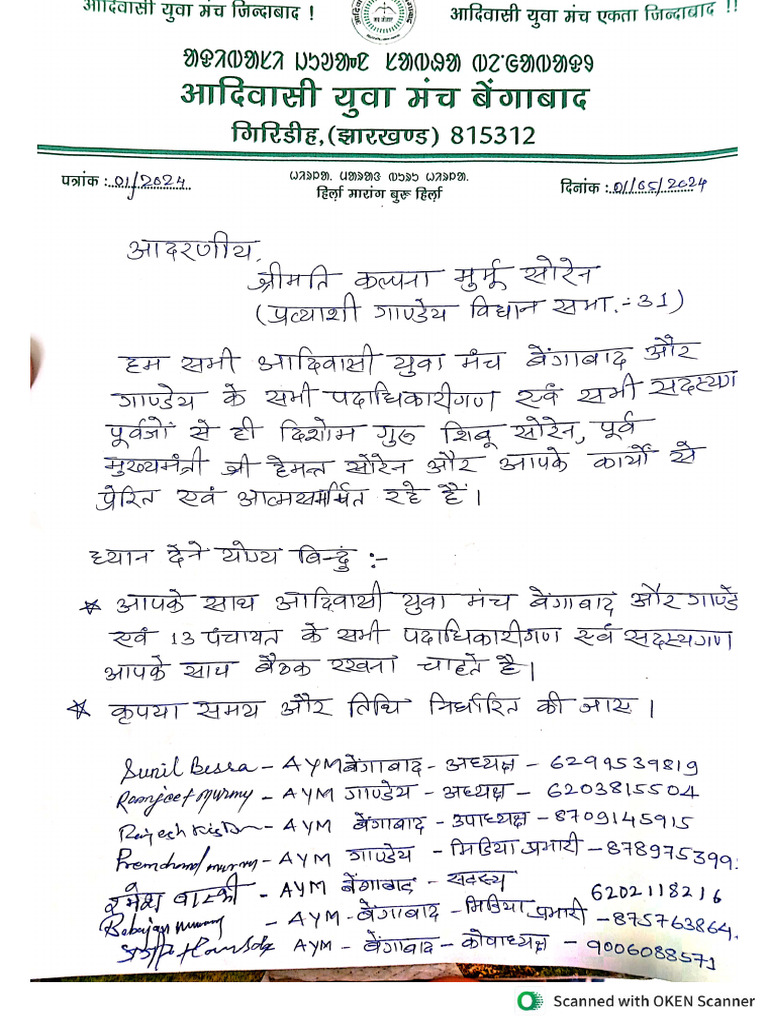 आदिवासी युवा मंच जिन्दाबाद ! आदिवासी युवा मंच एकता जिन्दाबाद !!
आदिवासी युवा मंच बेंगाबाद
गिरिडीह,(झारखण्ड) 815312
पत्रांक :..01/2024 दिनांक :..01/05/2024
हिर्ला़ मारांग बुरू हिर्ला़
आदरणीय,
श्रीमति कल्पना मुर्मू सोरेन
(प्रत्याशी गाण्डेय विधान सभा.-31)
हम सभी आदिवासी युवा मंच बेंगाबाद और
गाण्डेय के सभी पदाधिकारीगण एवं सभी सदस्यग
पूर्वजों से ही दिशोम गुरु शिबू सोरेन, पूर्व
मुख्यमंत्री श्री हेमन्त सोरेन और आपके कार्यों से
प्रेरित एवं आत्मसमर्पित रहे हैं।
ध्यान देने योग्य बिन्दुं :-
* आपके साथ आदिवासी युवा मंच बेंगाबाद और गाण्डे
एवं 13 पंचायत के सभी पदाधिकारीगण एवं सदस्यगण
आपके साथ बैठक रखना चाहते है।
* कृपया समय और तिथि निर्धारित की जाए।
Sunil Besra - AYM बेंगाबाद - अध्यक्ष - 6299539819
Ramjeet Murmy - AYM गाण्डेय - अध्यक्ष - 6203815504
Rajesh - AYM बेंगाबाद - उपाध्यक्ष - 8709145915
Premchand murmy - AYM गाण्डेय - मिडिया प्रभारी - 878975399
रमेश - AYM बेंगाबाद - सदस्य 6202118216
murmy - AYM - बेंगाबाद - मिडिया प्रभारी - 875763864
AYM - बेंगाबाद - कोषाध्यक्ष - 9006088571
Scanned with OKEN Scanner